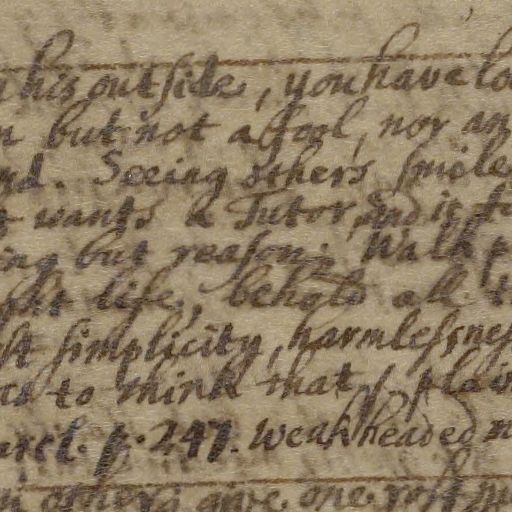 his outside, you have lo
n but not a fool, nor an
nd. Seeing others smile
wants a Tutor, and is
ing but reason: Walk
life, behold all
st simplicity, harmlessnes
to think that plain
p. 247. Weak headed
others give one